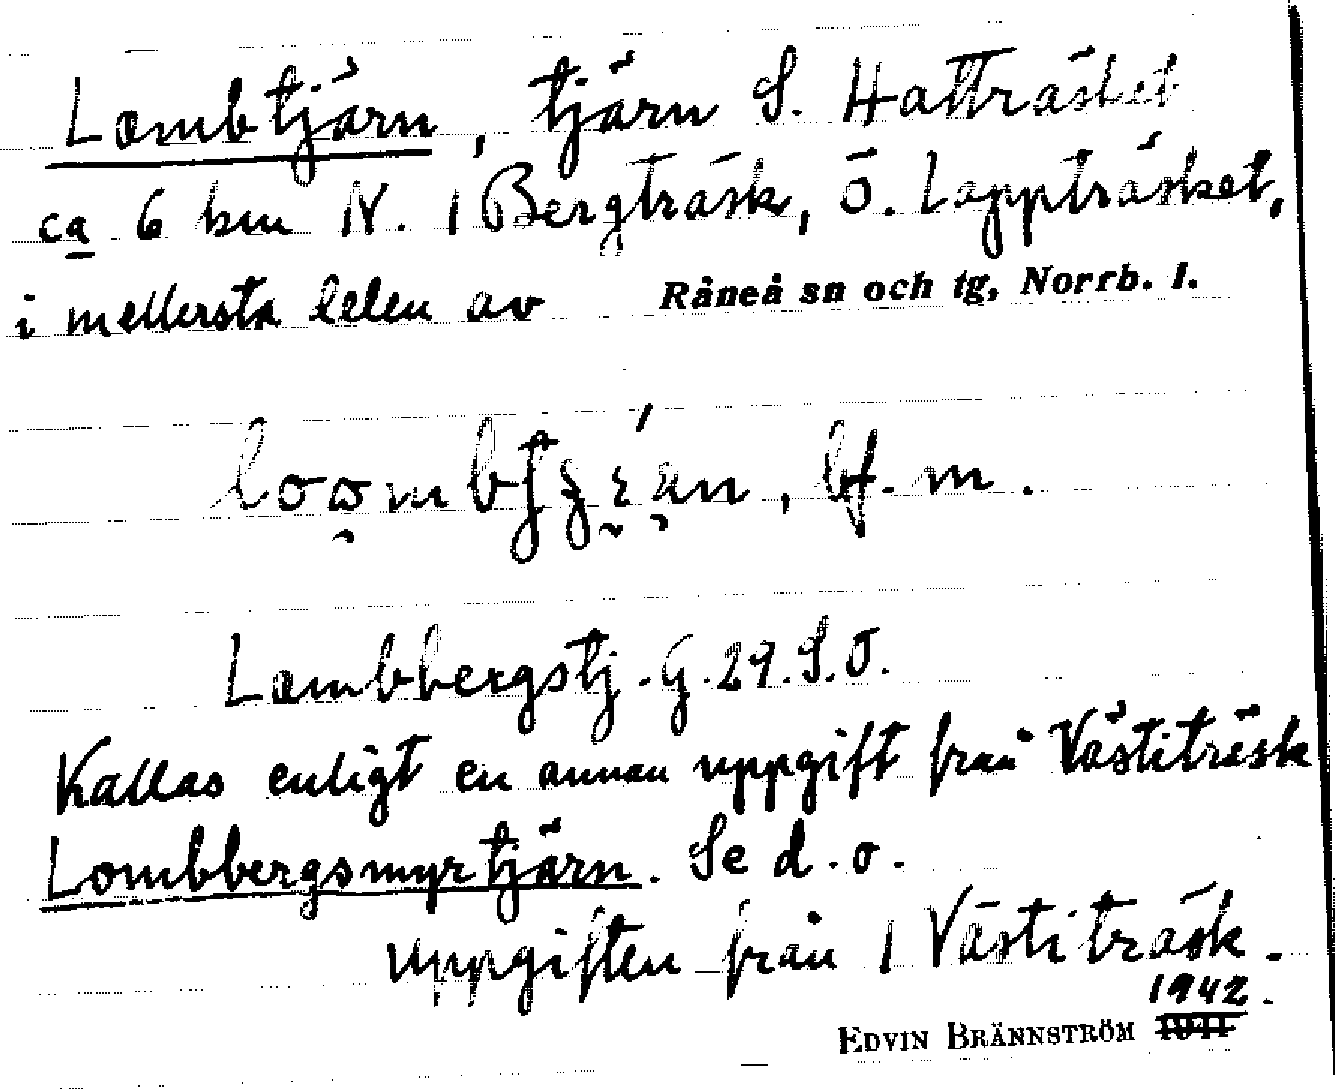 Lombtjärn, tjärn S. Hatträsket
ca 6 km N. 1 Bergträsk, ö. Lappträsket,
i mellersta delen av Råneå sn och tg, Norrb. l.
bf. m.
Lombbergstj. G. 29. S. O.
Kallas enligt en annan uppgift från Västiträsk
Lombbergsmyrtjärn. Se d. o.
uppgiften från 1 Västiträsk.
1942.
EDVIN BRÄNNSTRÖM 1941